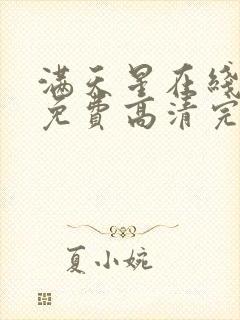 满天星在线
免費高清完
夏小婉